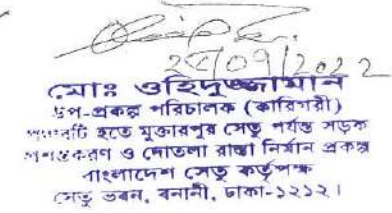 ২৫/০৭/২০২২
মোঃ ওহিদুজ্জামান
উপ-প্রকল্প পরিচালক (কারিগরী)
হতে মুক্তারপুর সেতু পর্যন্ত সড়ক
প্রশস্তকরণ ও দোতলা রাস্তা নির্মান প্রকল্প
বাংলাদেশ সেতু কর্তৃপক্ষ
সেতু ভবন, বনানী, ঢাকা-১২১২।